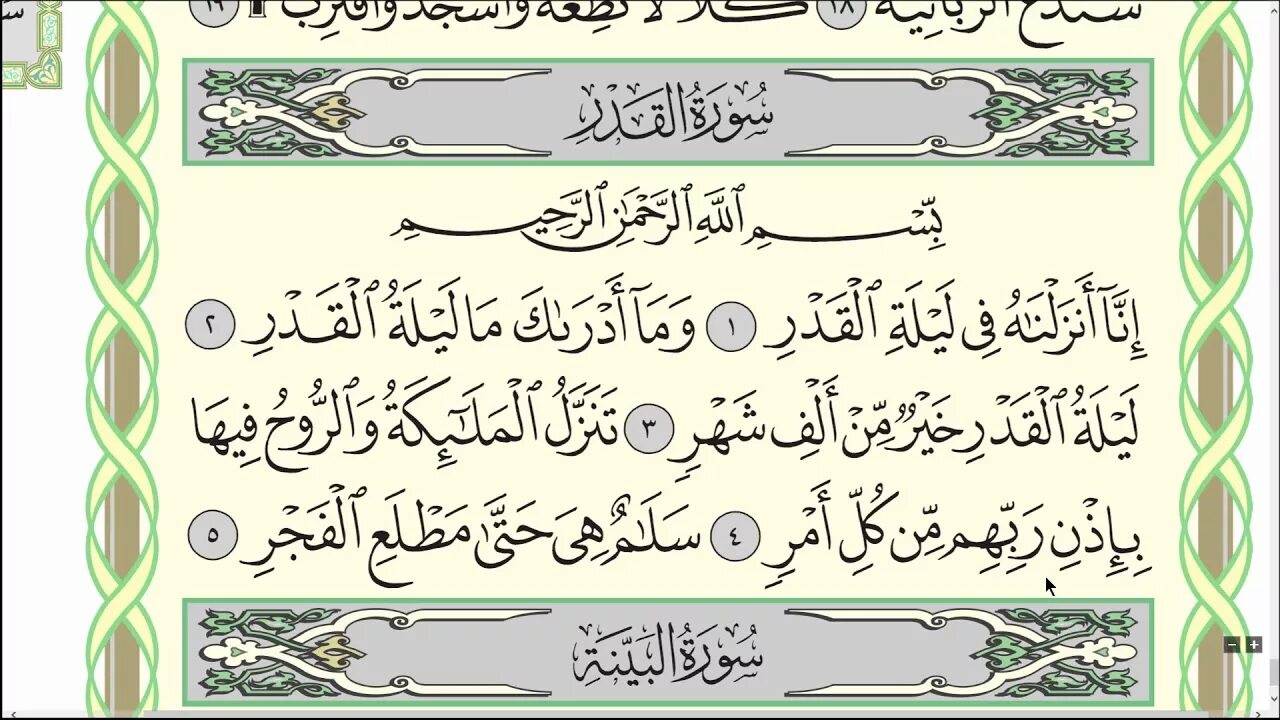 سَنَدْعُ ٱلزَّبَانِيَةَ ١٨ كَلَّا لَا تُطِعْهُ وَٱسْجُدْ وَٱقْتَرِب ١٩
سُورَةُ القَدۡرِ
بِسۡمِ ٱللَّهِ ٱلرَّحۡمَٰنِ ٱلرَّحِيمِ
إِنَّآ أَنزَلۡنَٰهُ فِي لَيۡلَةِ ٱلۡقَدۡرِ ١ وَمَآ أَدۡرَىٰكَ مَا لَيۡلَةُ ٱلۡقَدۡرِ ٢
لَيۡلَةُ ٱلۡقَدۡرِ خَيۡرٞ مِّنۡ أَلۡفِ شَهۡرٖ ٣ تَنَزَّلُ ٱلۡمَلَٰٓئِكَةُ وَٱلرُّوحُ فِيهَا
بِإِذۡنِ رَبِّهِم مِّن كُلِّ أَمۡرٖ ٤ سَلَٰمٌ هِيَ حَتَّىٰ مَطۡلَعِ ٱلۡفَجۡرِ ٥
سُورَةُ البَيِّنَةِ